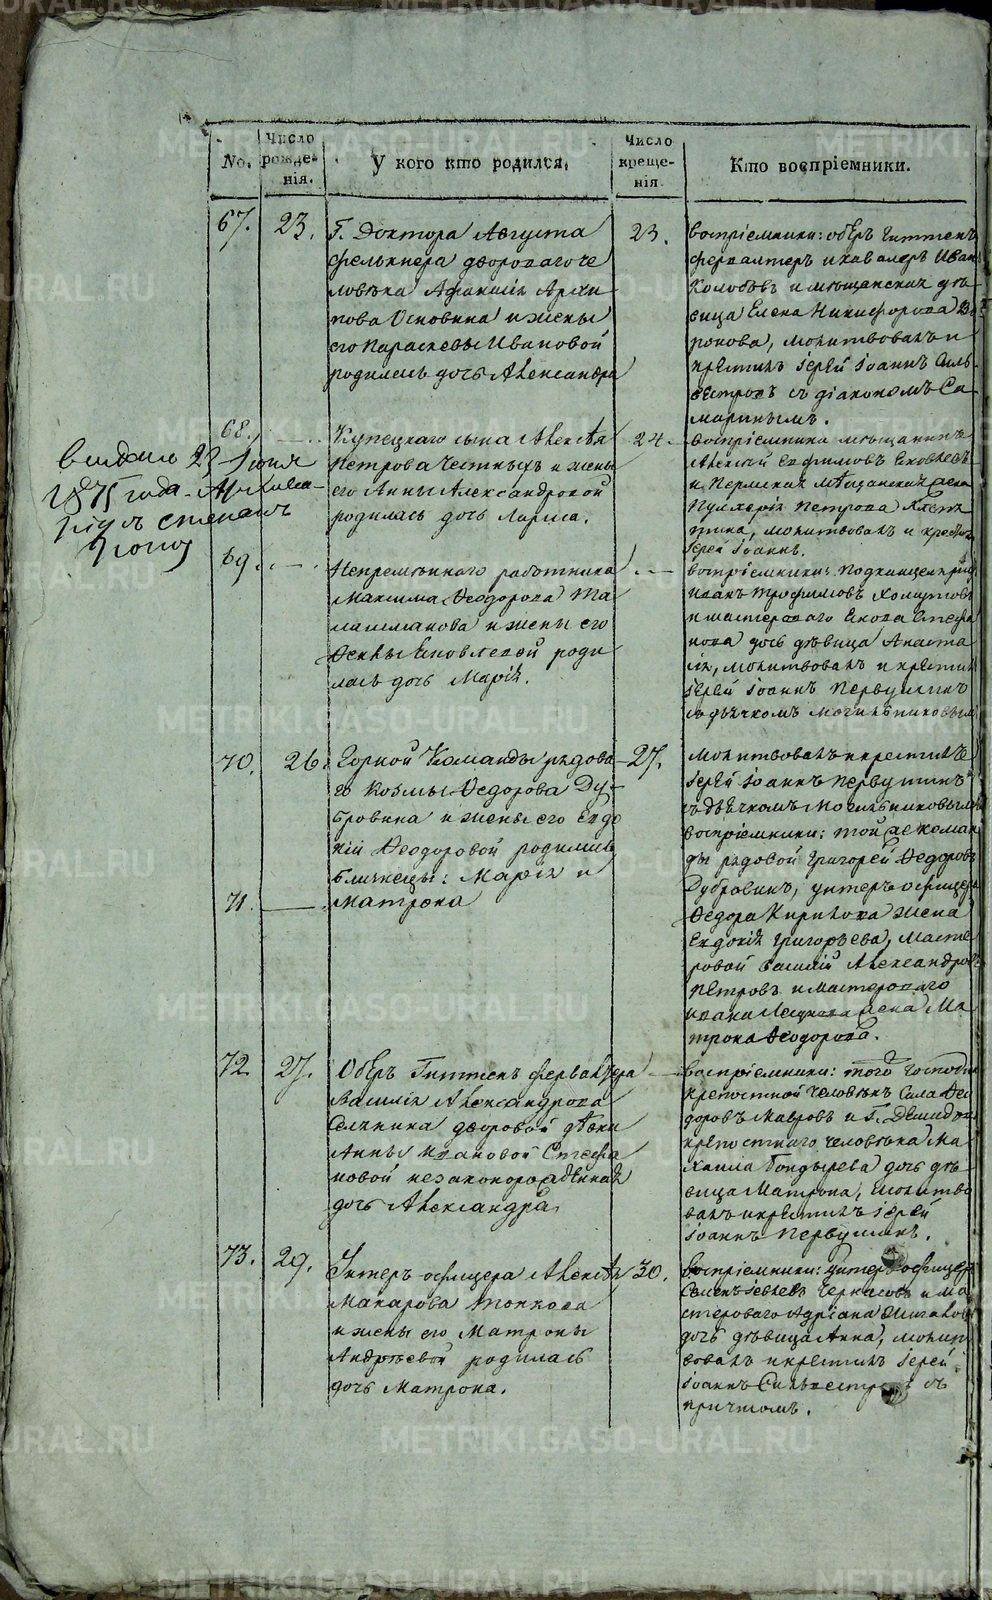 No.
Число рожде-нія.
У кого кто родился.
Число креще-нія
Кто воспріемники.
67. 23.
Г. Доктора Августа
Фелькнера двороваго че
ловѣка Афанасія Архи
пова Основина и жены
его Параскевы Ивановой
родилась дочь Александра
23.
воспріемники: оберъ гиттенъ
фервалтеръ и кавалеръ Иван
Колобовъ и мѣщанская дѣ
вица Елена Никифорова Во
ронова, молитвовалъ и
крестилъ Іерей Іоаннъ Силь
вестровъ съ діакономъ Са
маринымъ.
68.
Купецкаго сына Алексѣя
Петрова Честныхъ и жены
его Анны Александровой
родилась дочь Лариса.
24.
воспріемники мѣщанинъ
Алексѣй Евфимовъ
и Пермская мѣщанская жена
Пулхерія Петрова
молитвовалъ и крестилъ
Іерей Іоаннъ.
выдано 23 Іюня
1875 года.
69.
Непремѣннаго работника
Максима Ѳеодорова Та
лашманова и жены его
Ѳеклы Яковлевой роди
лась дочь Марія.
воспріемники:
Иванъ Трофимовъ Хомутовъ
и мастероваго Якова Стефа
нова дочь дѣвица Анаста
сія, молитвовалъ и крестилъ
Іерей Іоаннъ Первушинъ
съ дьячкомъ Могильниковым
70. 26.
Горной Команды рядова
го Козмы Ѳедорова Ду-
бровина и жены его Евдо
кіи Ѳеодоровой родились
близнецы: Марія и
71.
Матрона
27.
молитвовалъ и крестилъ
Іерей Іоаннъ Первушинъ
съ дьячкомъ Могильниковым
воспріемники: той же коман
ды рядовой Григорей Ѳедоровъ
Дубровинъ, унтеръ офицера
Ѳедора Кирилова жена
Евдокія Григорьева, масте
ровой Василій Александровъ
Петровъ и мастероваго
Ивана жена Ма
трона Ѳеодорова.
72. 27.
Оберъ Гиттенъ фервалтера
Василія Александрова
дворовой дѣвки
Анны Ивановой Стефа
новой незаконорожденная
дочь Александра.
воспріемники: того Господина
крепостной человѣкъ Сила Ѳео
доровъ Мавровъ и Г. Демидова
крепостнаго человѣка Ми
хаила Бондырева дочь дѣ-
вица Матрона, молитво
валъ и крестилъ Іерей
Іоаннъ Первушинъ.
73. 29.
Унтеръ офицера Алексѣя
Макарова Топкова
и жены его Матроны
Андреевой родилась
дочь Матрона.
30.
Воспріемники: унтеръ офицеръ
Семенъ Черкасовъ и ма
стероваго Адріана
дочь дѣвица Анна, молит
вовалъ и крестилъ Іерей
Іоаннъ Сильвестровъ съ
причтомъ.
METRIKI.GASO-URAL.RU